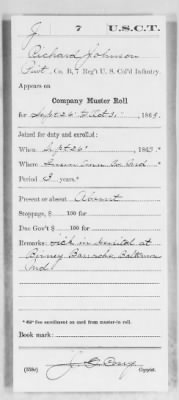 J 7 U.S.C.T.
Richard Johnson
Pvt., Co. B, 7 Reg't U. S. Col'd Infantry.
Appears on
Company Muster Roll
for Sept 26 to Oct 31, 1863.
Joined for duty and enrolled:
When Sept 26, 1863.*
Where
Period 3 years.*
Present or absent Absent
Stoppage, $ 100 for
Due Gov't $ 100 for
Remarks: sick in Hospital at
Barracks Baltimore
Md.
Book mark:
(358c) Copyist.